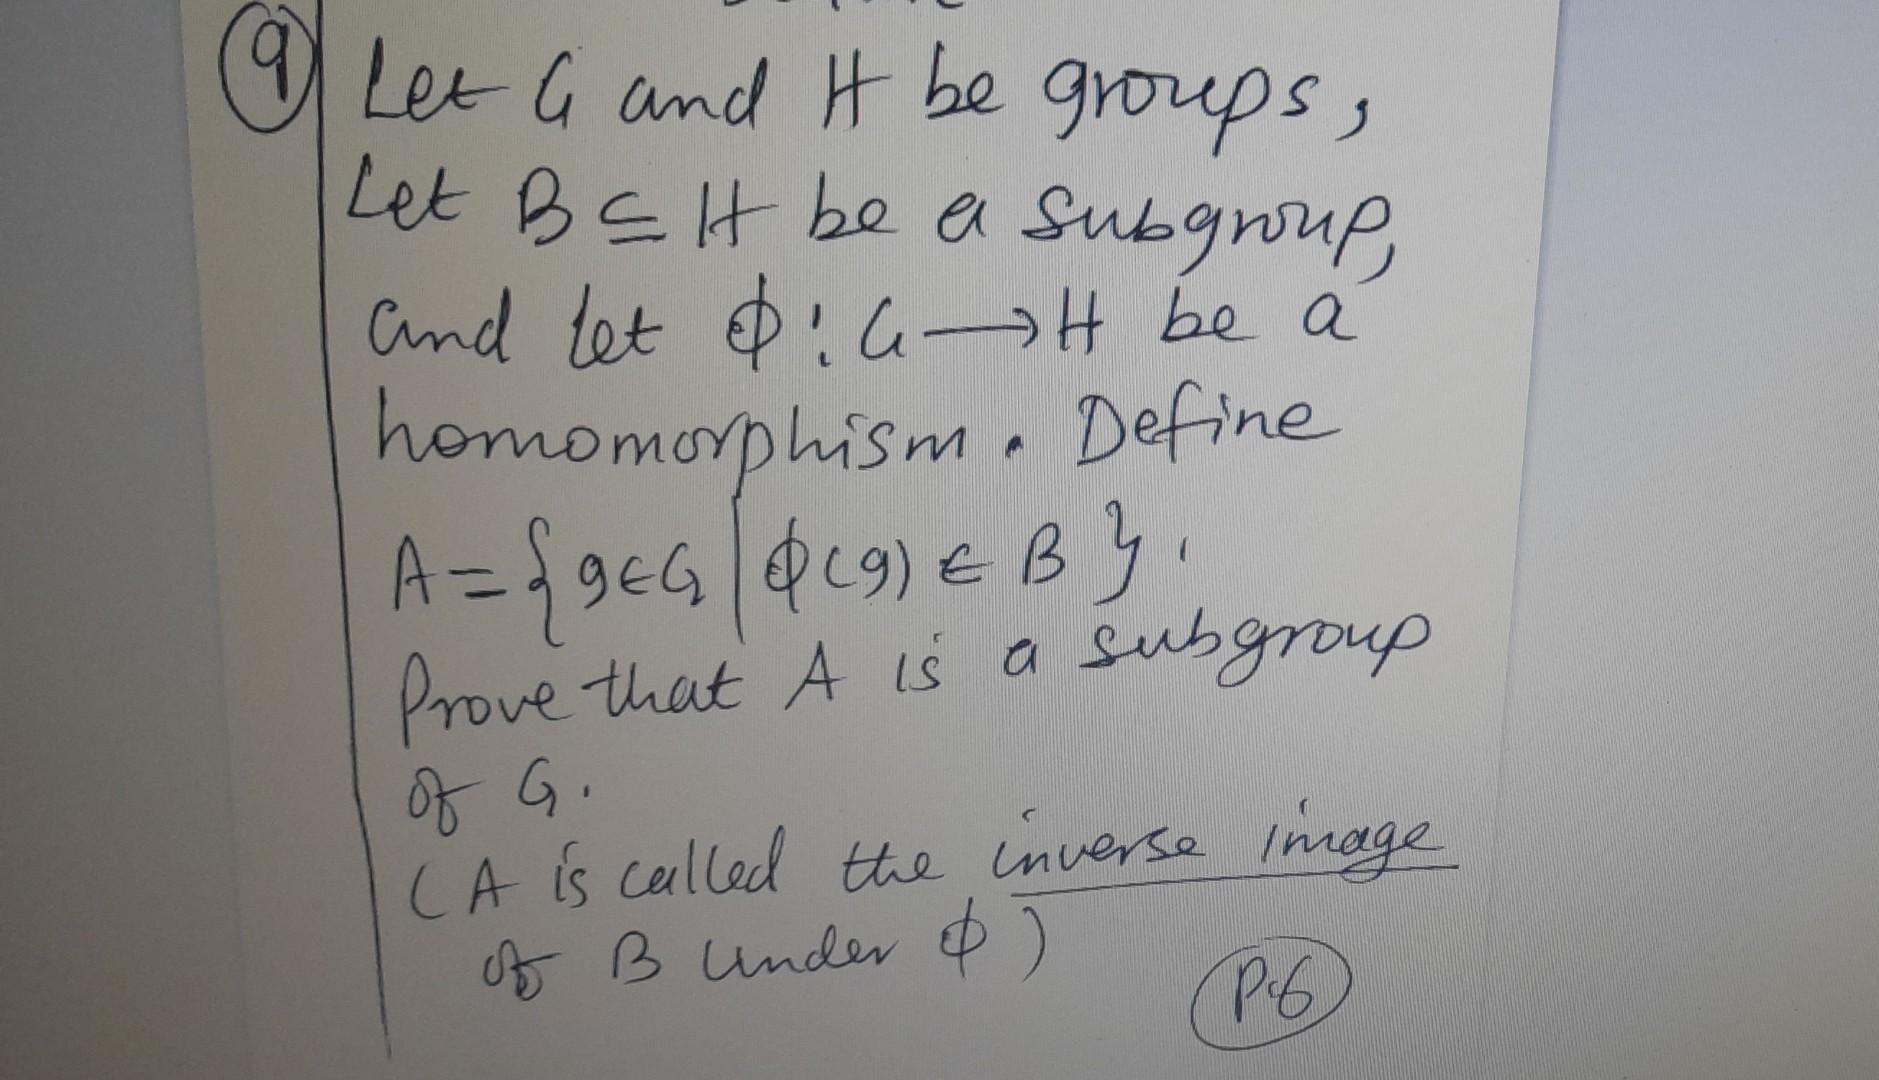 9 Let G and H be groups,
Let B ⊆ H be a subgroup,
and let φ: G → H be a
homomorphism. Define
A = { g ∈ G | φ(g) ∈ B }.
Prove that A is a subgroup
of G.
(A is called the inverse image
of B under φ)
P.6